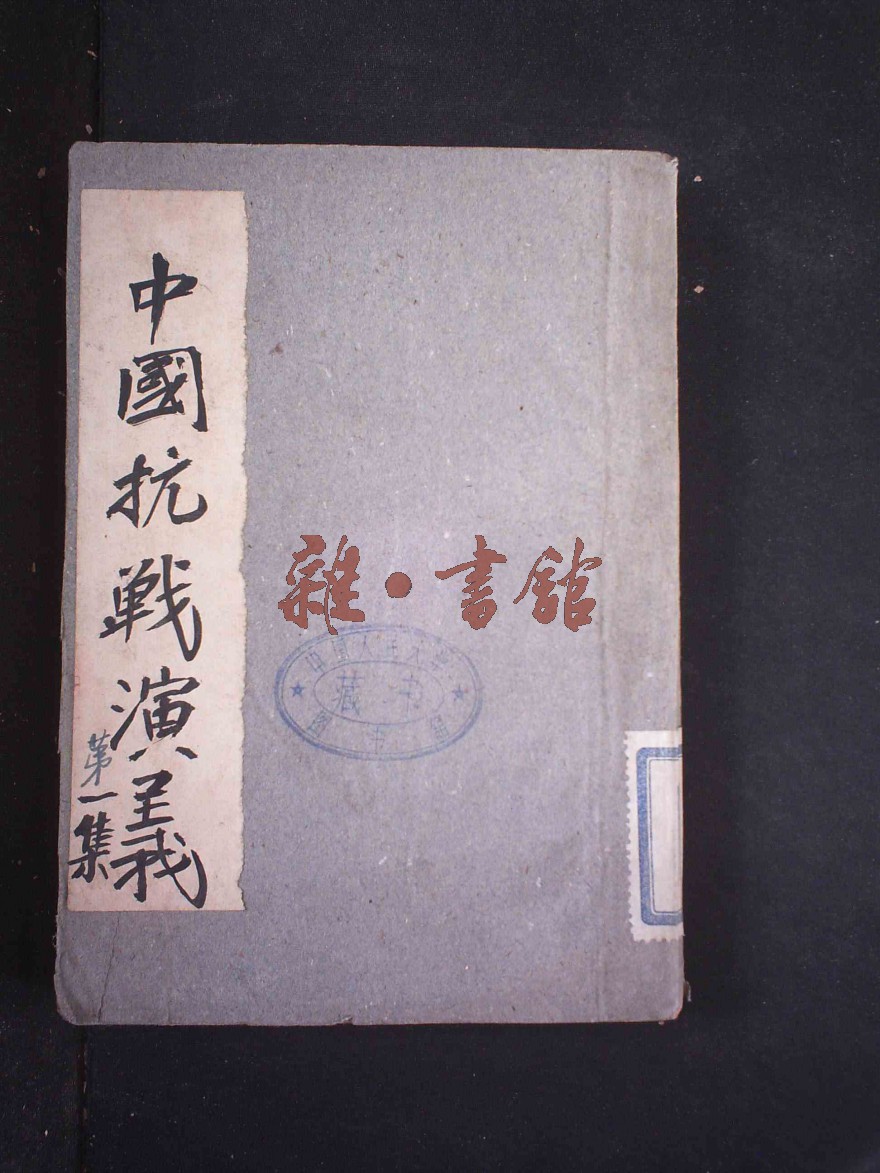 中國抗戰演義
第一集
雜·書館
中國人民大學
藏书
圖书館